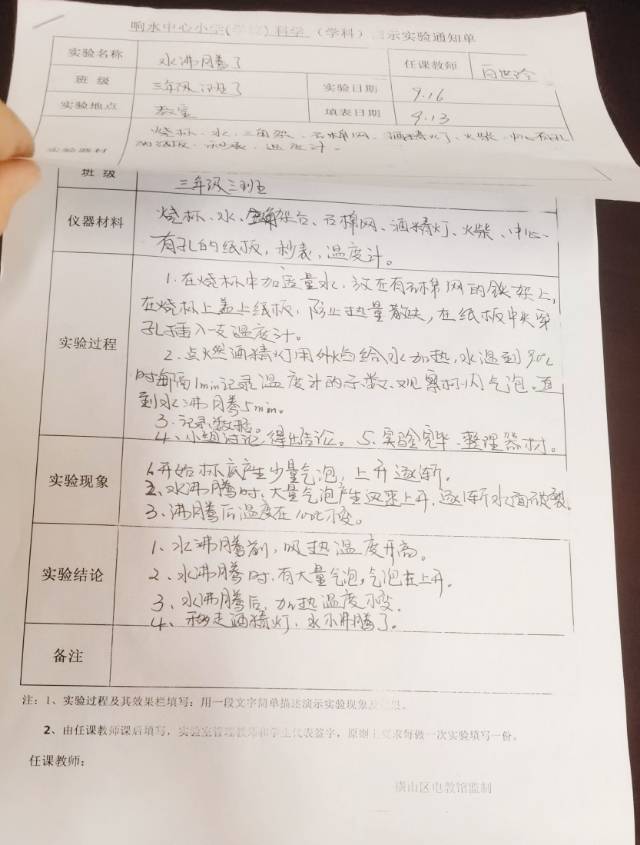 响水中心小学(学校)科学(学科)演示实验通知单
实验名称 水沸腾了 任课教师
班级 三年级三班 实验日期 9.16
实验地点 教室 填表日期 9.13
实验器材 烧杯、水、三角架、石棉网、酒精灯、火柴、中心有孔
的纸板、秒表、温度计。
班级 三年级三班
仪器材料 烧杯、水、架台、石棉网、酒精灯、火柴、中心
有孔的纸板,秒表,温度计。
实验过程
1.在烧杯中加适量水,放在有石棉网的铁架上,
在烧杯上盖上纸板,防止热量散失,在纸板中央穿
孔插入一支温度计。
2.点燃酒精灯用外焰给水加热,水温到90℃
时每隔1min记录温度计的示数、观察杯内气泡。直
到水沸腾5min。
3.记录数据。
4、小组讨论得出结论。5.实验完毕.整理器材.
实验现象
1.开始杯底产生少量气泡,上升逐渐.
2、水沸腾时,大量气泡产生迅速上升,逐渐水面破裂.
3.沸腾后温度在 不变.
实验结论
1、水沸腾前,吸热温度升高。
2、水沸腾时,有大量气泡,气泡在上升。
3、水沸腾后,加热温度不变.
4、移走酒精灯,水不沸腾了。
备注
注:1、实验过程及其效果栏填写:用一段文字简单描述演示实验现象及结果。
2、由任课教师课后填写,实验室管理教师和学生代表签字,原则上要求每做一次实验填写一份。
任课教师:
横山区电教馆监制